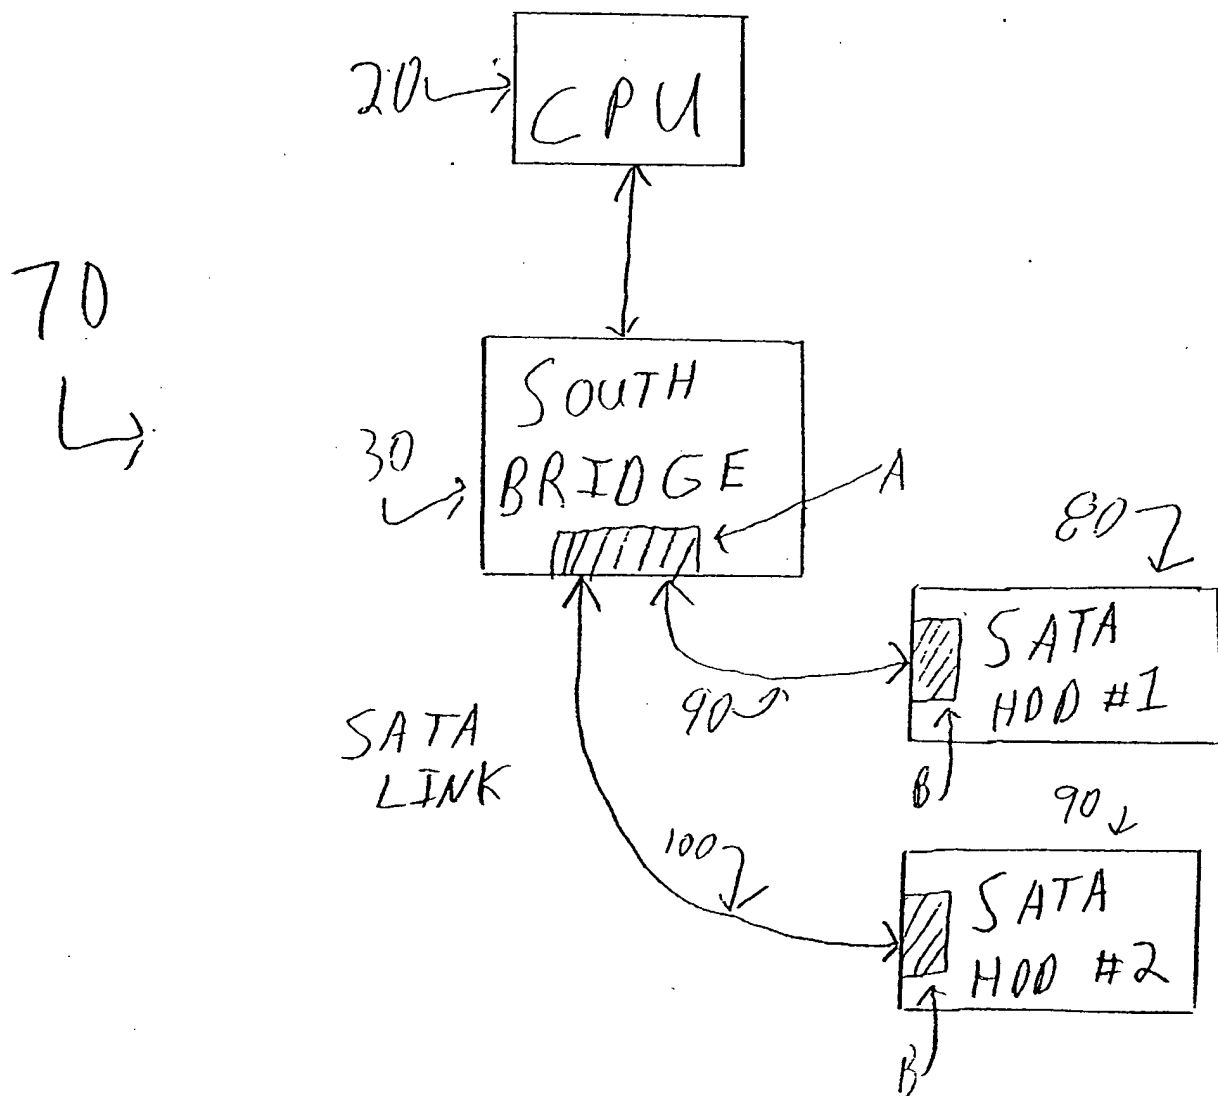 20
CPU
70
SOUTH
BRIDGE
30
A
80
SATA
HDD #1
90
B
SATA
LINK
90
100
SATA
HDD #2
B